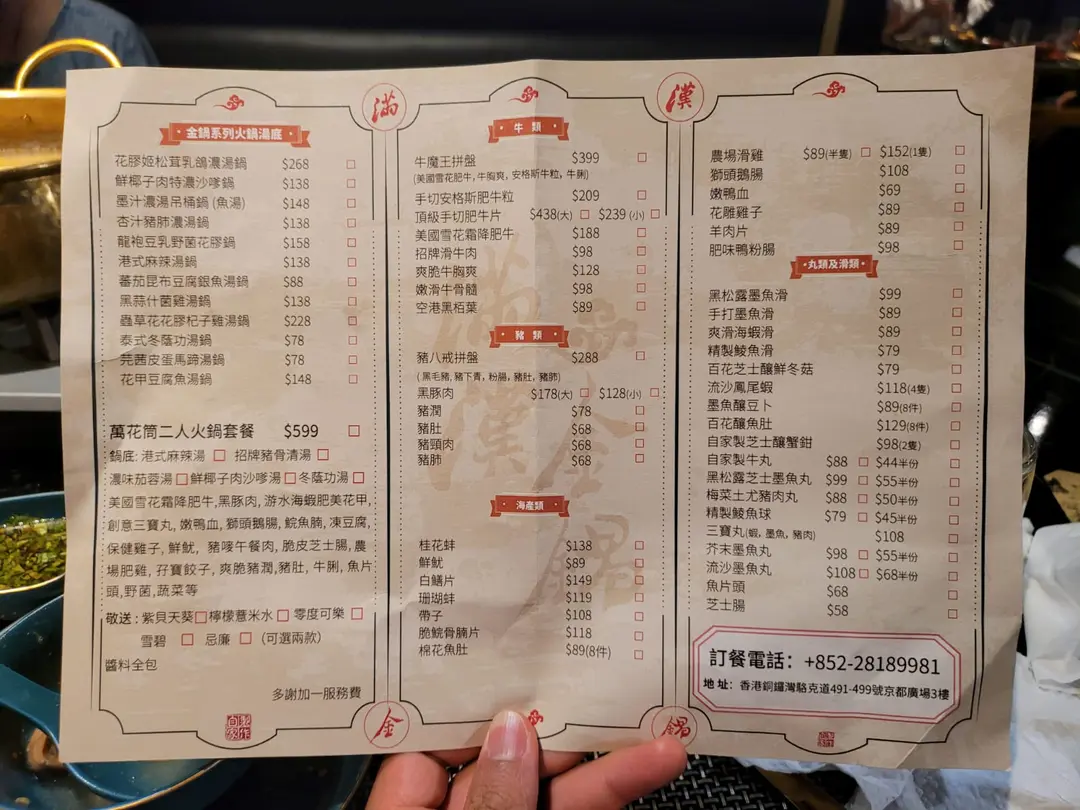 滿
漢
金鍋系列火鍋湯底
花膠姬松茸乳鴿濃湯鍋 $268
鮮椰子肉特濃沙嗲鍋 $138
墨汁濃湯吊桶鍋 (魚湯) $148
杏汁豬肺濃湯鍋 $138
龍袍豆乳野菌花膠鍋 $158
港式麻辣湯鍋 $138
蕃茄昆布豆腐銀魚湯鍋 $88
黑蒜什菌雞湯鍋 $138
蟲草花花膠杞子雞湯鍋 $228
泰式冬蔭功湯鍋 $78
芫茜皮蛋馬蹄湯鍋 $78
花甲豆腐魚湯鍋 $148
萬花筒二人火鍋套餐 $599
鍋底: 港式麻辣湯 招牌豬骨清湯
濃味茄蓉湯 鮮椰子肉沙嗲湯 冬蔭功湯
美國雪花霜降肥牛,黑豚肉, 游水海蝦肥美花甲,
創意三寶丸, 嫩鴨血, 獅頭鵝腸, 鯇魚腩, 凍豆腐,
保健雞子, 鮮魷, 豬嘜午餐肉, 脆皮芝士腸, 農
場肥雞, 孖寶餃子, 爽脆豬潤,豬肚, 牛脷, 魚片
頭,野菌,蔬菜等
敬送 : 紫貝天葵 檸檬薏米水 零度可樂
雪碧 忌廉 (可選兩款)
醬料全包
多謝加一服務費
牛 類
牛魔王拼盤 $399
(美國雪花肥牛, 牛胸爽, 安格斯牛粒, 牛脷)
手切安格斯肥牛粒 $209
頂級手切肥牛片 $438(大) $239 (小)
美國雪花霜降肥牛 $188
招牌滑牛肉 $98
爽脆牛胸爽 $128
嫩滑牛骨髓 $98
空港黑栢葉 $89
豬 類
豬八戒拼盤 $288
( 黑毛豬, 豬下青 , 粉腸, 豬肚, 豬肺)
黑豚肉 $178(大) $128(小)
豬潤 $78
豬肚 $68
豬頸肉 $68
豬肺 $68
海產類
桂花蚌 $138
鮮魷 $89
白鱔片 $149
珊瑚蚌 $119
帶子 $108
脆鯇骨腩片 $118
棉花魚肚 $89(8件)
農場滑雞 $89(半隻) $152(1隻)
獅頭鵝腸 $108
嫩鴨血 $69
花雕雞子 $89
羊肉片 $89
肥味鴨粉腸 $98
•丸類及滑類•
黑松露墨魚滑 $99
手打墨魚滑 $89
爽滑海蝦滑 $89
精製鯪魚滑 $79
百花芝士釀鮮冬菇 $79
流沙鳳尾蝦 $118(4隻)
墨魚釀豆卜 $89(8件)
百花釀魚肚 $129(8件)
自家製芝士釀蟹鉗 $98(2隻)
自家製牛丸 $88 $44半份
黑松露芝士墨魚丸 $99 $55半份
梅菜土尤豬肉丸 $88 $50半份
精製鯪魚球 $79 $45半份
三寶丸(蝦, 墨魚, 豬肉) $108
芥末墨魚丸 $98 $55半份
流沙墨魚丸 $108 $68半份
魚片頭 $68
芝士腸 $58
訂餐電話: +852-28189981
地 址: 香港銅鑼灣駱克道491-499號京都廣場3樓
金
鍋